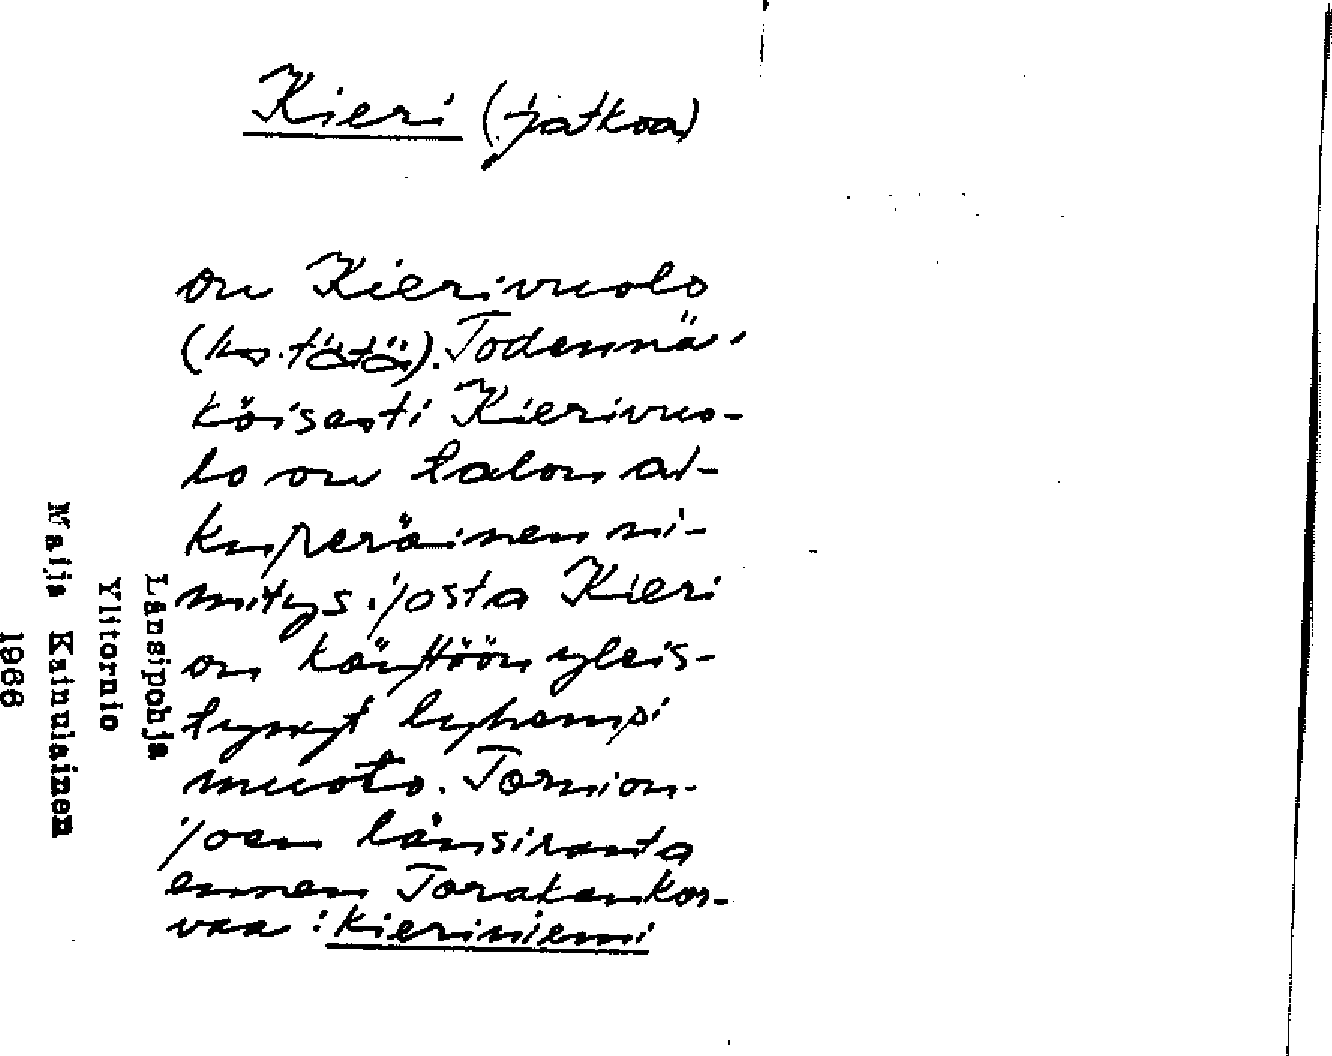 Kieri (jatkoa)
on Kierivuolo
(ks. tätä). Todennä-
köisesti Kierivuo-
lo on talon al-
kuperäinen ni-
mitys, josta Kieri
on käyttöön yleis-
tynyt lyhempi
muoto. Tornion-
joen länsiranta
ennen Torakankor-
vaa : Kieriniemi
Länsipohja
Ylitornio
Maija Kainulainen
1966